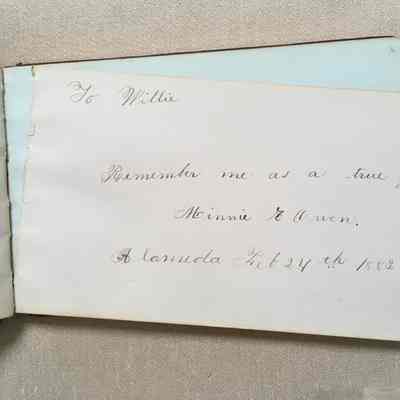 To Willie
Remember me as a true
Minnie E Owen.
Alameda Feb 24th 1882